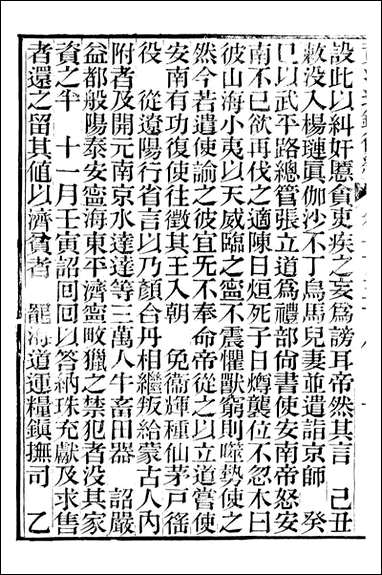 設此以糾奸慝貪吏疾之妄爲謗耳帝然其言　己丑
敕没入楊璉眞伽沙不丁烏馬兒妻並遣詣京師　癸
巳以武平路總管張立道爲禮部尙書使安南帝怒安
南不已欲再伐之適陳日烜死子日燇襲位不忽木曰
彼山海小夷以天威臨之寧不震懼獸窮則噬勢使之
然今若遣使諭之彼宜无不奉命帝從之以立道嘗使
安南有功復使往徵其王入朝　免衞輝種仙茅戸徭
役　從遼陽行省言以乃顏台丹相繼叛給蒙古人内
附者及開元南京水達達等三萬人牛畜田器　詔嚴
益都般陽泰安寧海東平濟寧畋獵之禁犯者没其家
資之半　十一月壬寅詔回回以答納珠充獻及求售
者還之留其値以濟貧者　罷海道運糧鎭撫司　乙